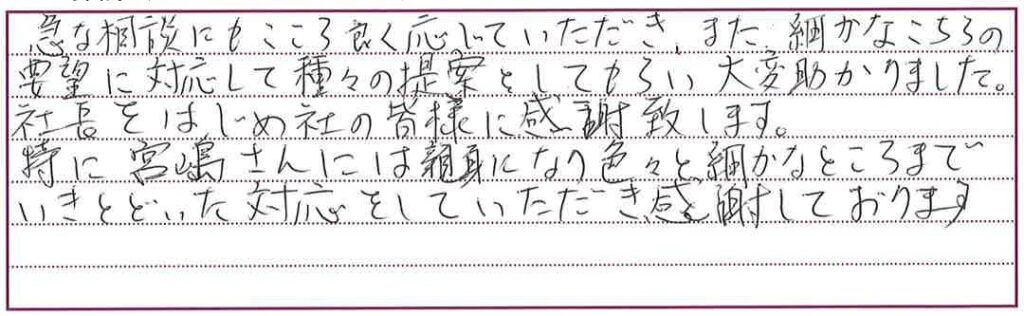 急な相談にもこころ良く応じていただき、また、細かなこちらの
要望に対応して種々の提案をしてもらい大変助かりました。
社長をはじめ社の皆様に感謝致します。
特に宮嶋さんには親身になり色々と細かなところまで
いきとどいた対応をしていただき感謝しております